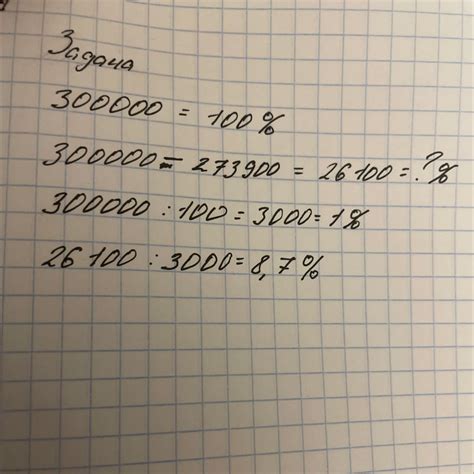 Задача
300000 = 100%
300000 - 273900 = 26100 = ?%
300000 : 100 = 3000 = 1%
26100 : 3000 = 8,7%